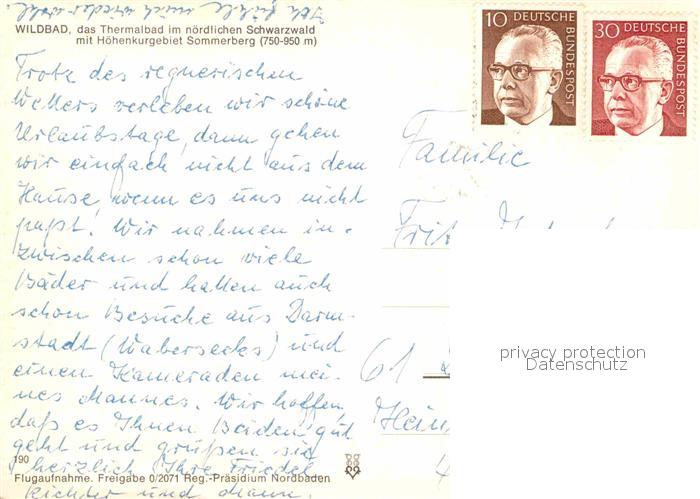 Ich fühle mich wieder wohl.
WILDBAD, das Thermalbad im nördlichen Schwarzwald
mit Höhenkurgebiet Sommerberg (750-950 m)
Trotz des regnerischen
Wetters verleben wir schöne
Urlaubstage, dann gehen
wir einfach nicht aus dem
Hause, wenn es uns nicht
paßt! Wir nahmen in-
zwischen schon viele
Bäder und hatten auch
schon Besuche aus Darm-
stadt (Wabersecks) und
einen Kameraden mei-
nes Mannes. Wir hoffen,
daß es Ihnen Beiden gut
geht und grüßen sie
herzlich Ihre Friedel
Richter und Mann.
190
Flugaufnahme. Freigabe 0/2071 Reg.-Präsidium Nordbaden
10 DEUTSCHE
BUNDESPOST
30 DEUTSCHE
BUNDESPOST
Familie
61
privacy protection
Datenschutz